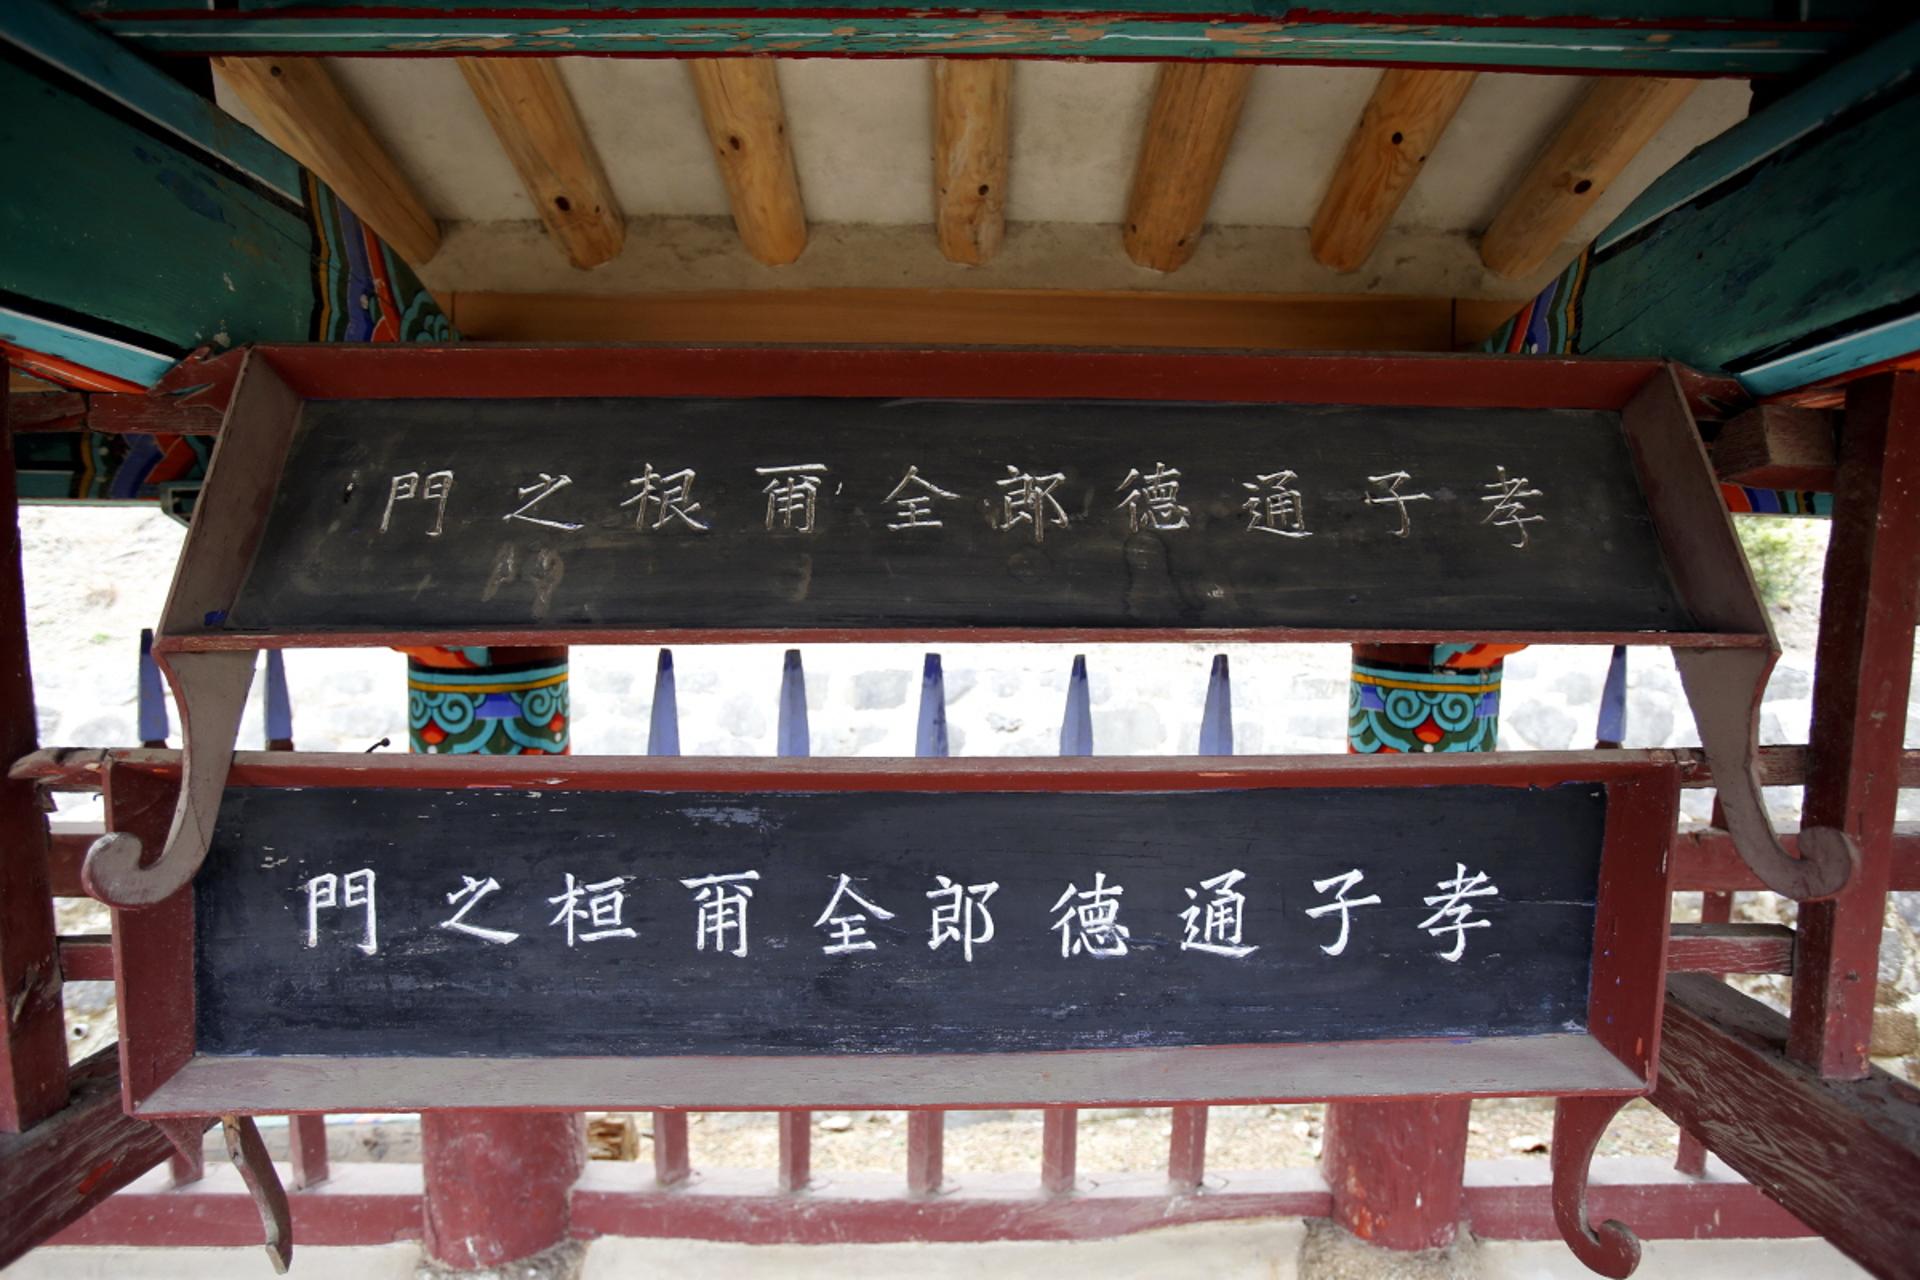 孝子通德郎全爾根之門
孝子通德郎全爾桓之門